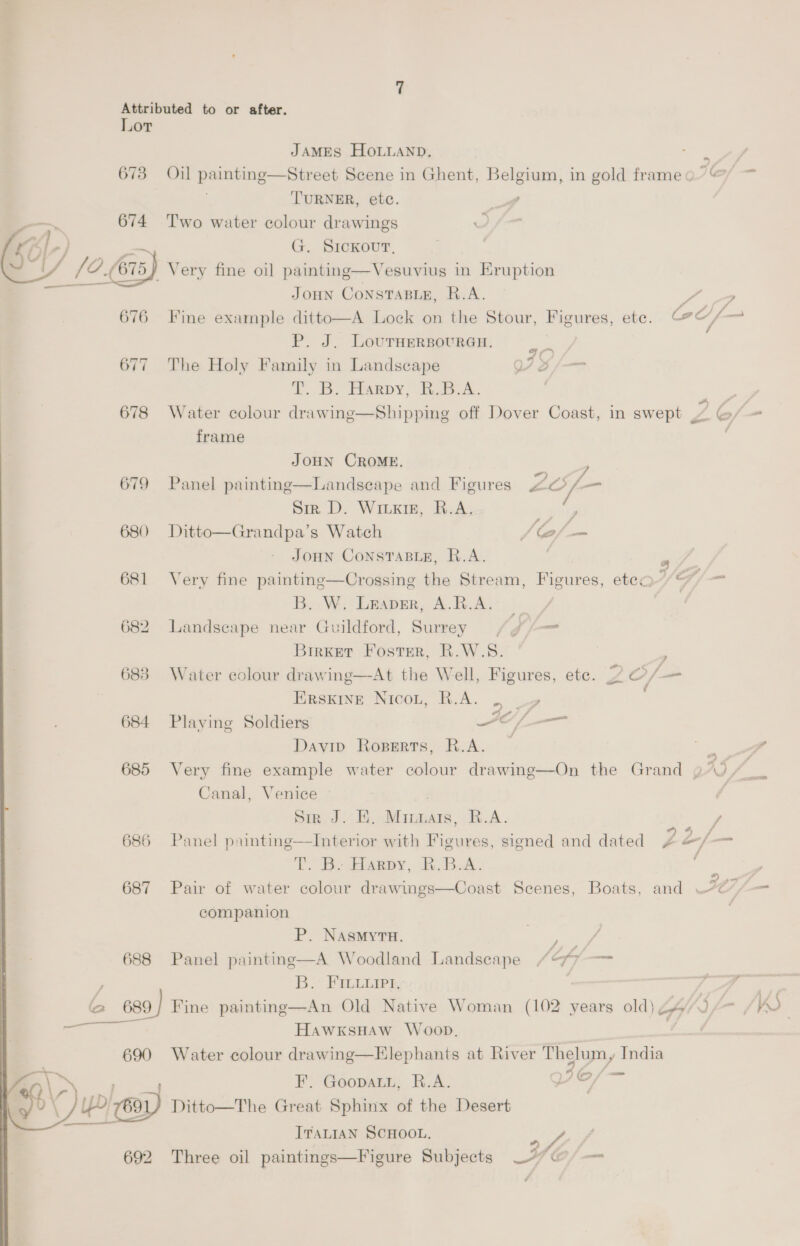 7
Attributed to or after.
Lot
JAMES HOLLAND.
673 Oil painting—Street Scene in Ghent, Belgium, in gold frame
TURNER, etc.
674 Two water colour drawings
G. SICKOUT.
675 Very fine oil painting—Vesuvius in Eruption
JOHN CONSTABLE, R.A.
676 Fine example ditto—A Lock on the Stour, Figures, etc.
P. J. LOUTHERBOURGH.
677 The Holy Family in Landscape
T. B. HARDY, R.B.A.
678 Water colour drawing—Shipping off Dover Coast, in swept
frame
JOHN CROME.
679 Panel painting—Landscape and Figures
SIR D. WILKIE, R.A.
680 Ditto—Grandpa's Watch
JOHN CONSTABLE, R.A.
681 Very fine painting—Crossing the Stream, Figures, etc.
B. W. LEADER, A.R.A.
682 Landscape near Guildford, Surrey
BIRKET FOSTER, R.W.S.
683 Water colour drawing—At the Well, Figures, etc.
ERSKINE NICOL, R.A.
684 Playing Soldiers
DAVID ROBERTS, R.A.
685 Very fine example water colour drawing—On the Grand
Canal, Venice
SIR J. E. MILLAIS, R.A.
686 Panel painting—Interior with Figures, signed and dated
T. B. HARDY, R.B.A.
687 Pair of water colour drawings—Coast Scenes, Boats, and
companion
P. NASMYTH.
688 Panel painting—A Woodland Landscape
B. FILLIPI.
689 Fine painting—An Old Native Woman (102 years old)
HAWKSHAW WOOD.
690 Water colour drawing—Elephants at River Thelum, India
F. GOODALL, R.A.
691 Ditto—The Great Sphinx of the Desert
ITALIAN SCHOOL.
692 Three oil paintings—Figure Subjects